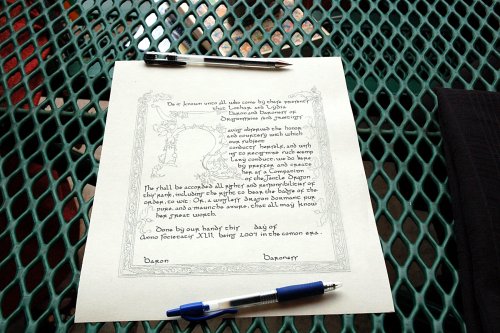 Be it known unto all who come by these presents
that Lothar and Lydia
Baron and Baroness of
Dragonsspine and Greetings
Having observed the honor
and courtesy with which
our subject
conducts herself, and wish
ing to recognize such exemp
lary conduct, we do here
by proffer and create
her as a Companion
of the Gentle Dragon
She shall be accorded all rights and responsibilities of
this rank, including the right to bear the badge of the
order, to wit: Or, a wingless dragon dormant pur
pure, and a maunche azure, that all may know
her great worth.
Done by our hands this day of
Anno Societatis XLII being 2007 in the common era.
Baron Baroness